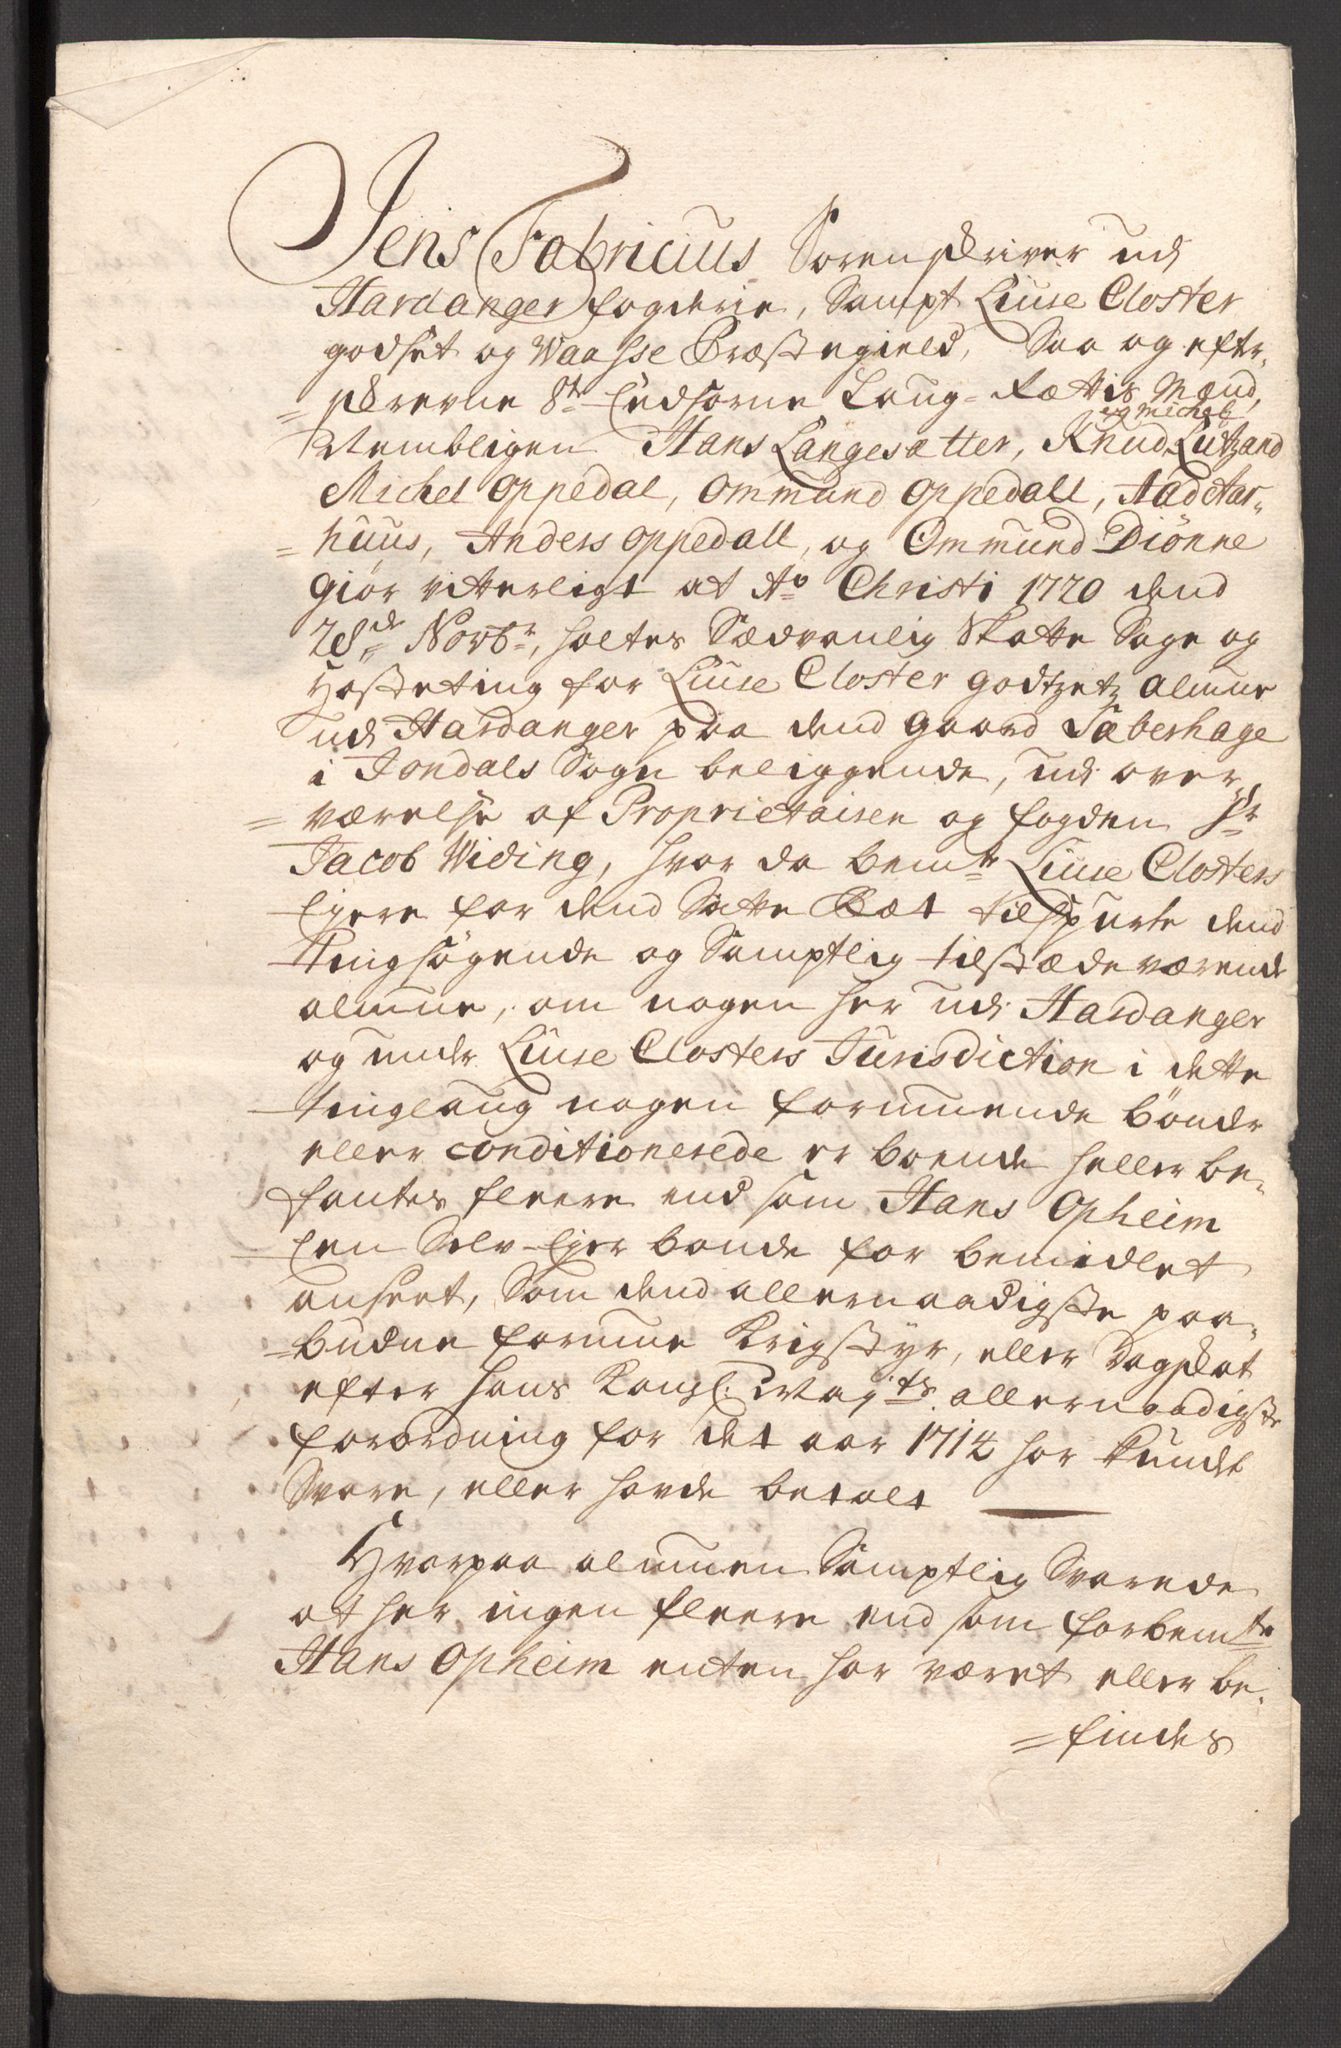 Jens Fabricius Sorenskriver udj
Hardanger fogderie, Sampt Liuse Closter
godset og Waasse Præstegield, Saa og efter-
= skrevne 8te Eedsorne Laug-Rættis Mænd,
og Michel
Nembligen Hans Langesætter, Knud Lutzand
Michel Oppedal, Ommund Oppedall, Aad Aar-
= huus, Anders Oppedall, og Ommund Diönne
Giör vitterligt at Ao Christi 1720 dend
28de Novbr, holtes Sædvanlig Skatte Sage og
Høsteting for Liuse Closter Godtzetz Almue
udj Hardanger paa dend gaard Sæberhage
i Jondals Sogn beliggende, udj over-
= værelse af Proprietairen og fogden Hr
Jacob Widing, hvor da bemte Liuse Closters
Ejere for dend Satte Ræt tilspurte dend
tingsögende og Samptlig tilstæde værende
almue, om nogen her udj Hardanger
og under Liuse Closters Jurisdiction i dette
tinglaug nogen formuende bönder
eller conditionerede er boende heller be-
fantes fleere end som Hans Opheim
Een Selv-Ejer bonde for bemidlet
anseet, Som dend allernaadigste paa-
= budne formue Krigsstyr, eller Dagskat
efter Hans Kongl: Maj:ts allernaadigste
forordning for det aar 1712 har kundet
Svare, eller hafde betalt
Hvorpaa almuen Samptlig Svarede
at her ingen fleere end som forbemte
Hans Opheim enten har været eller be-
= findes